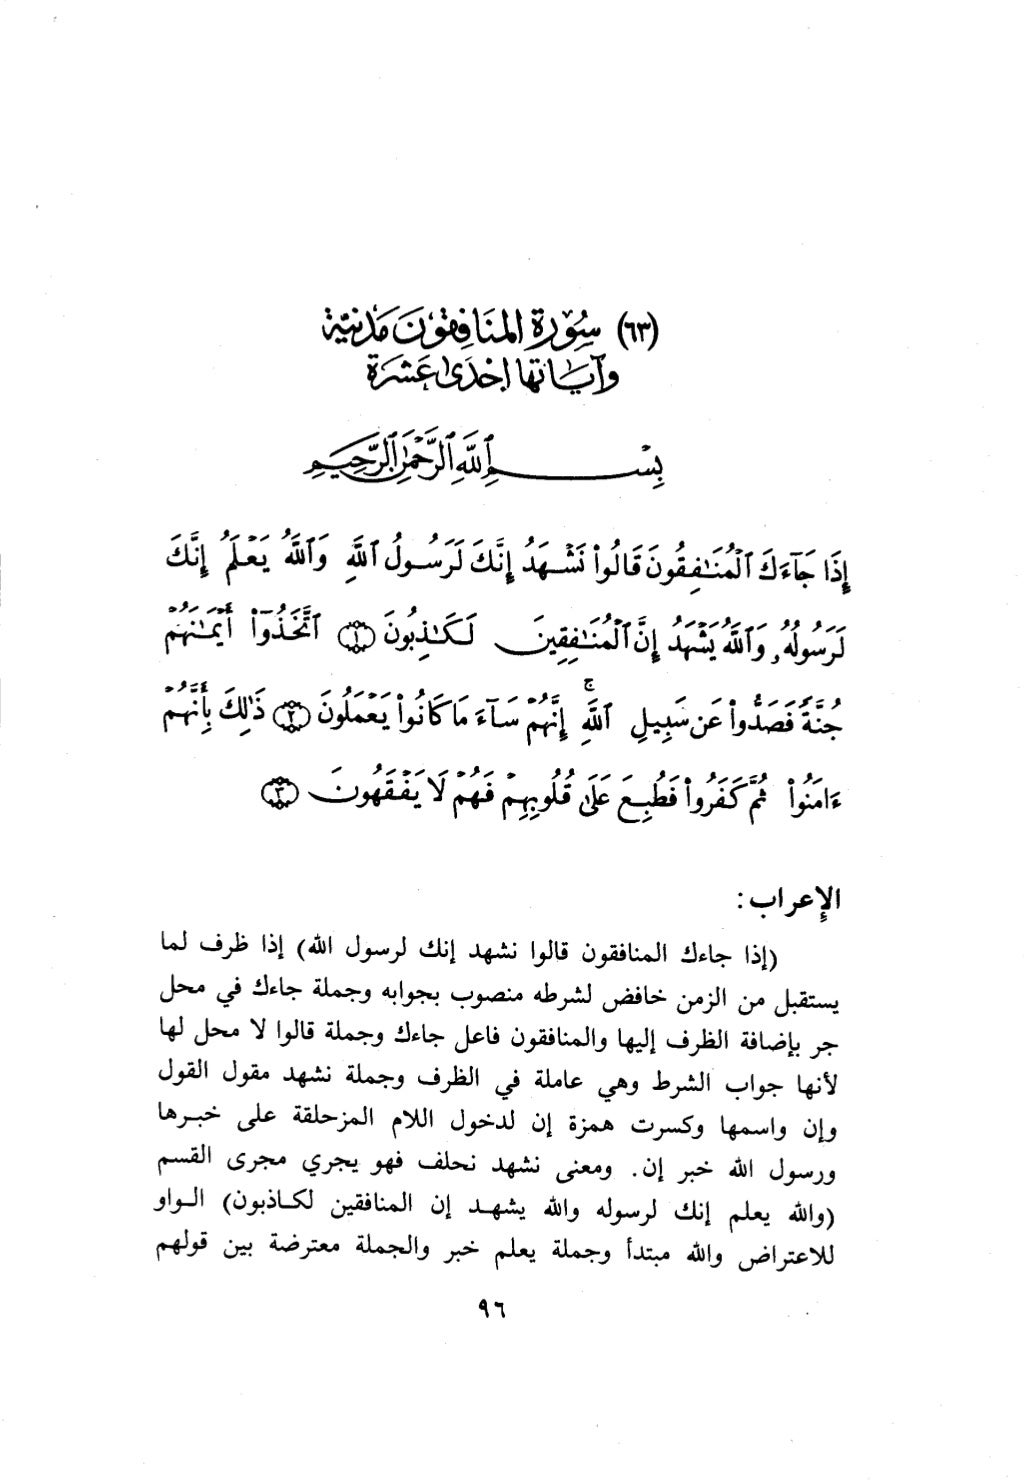 (٦٣) سُوْرَة المنَافِقونَ مَدنِيّة
وآيَاتها إحْدَى عَشرَة
بِسْمِ ٱللَّهِ ٱلرَّحْمَٰنِ ٱلرَّحِيمِ
إِذَا جَآءَكَ ٱلْمُنَٰفِقُونَ قَالُوا۟ نَشْهَدُ إِنَّكَ لَرَسُولُ ٱللَّهِ وَٱللَّهُ يَعْلَمُ إِنَّكَ
لَرَسُولُهُۥ وَٱللَّهُ يَشْهَدُ إِنَّ ٱلْمُنَٰفِقِينَ لَكَٰذِبُونَ ﴿١﴾ ٱتَّخَذُوٓا۟ أَيْمَٰنَهُمْ
جُنَّةً فَصَدُّوا۟ عَن سَبِيلِ ٱللَّهِ ۚ إِنَّهُمْ سَآءَ مَا كَانُوا۟ يَعْمَلُونَ ﴿٢﴾ ذَٰلِكَ بِأَنَّهُمْ
ءَامَنُوا۟ ثُمَّ كَفَرُوا۟ فَطُبِعَ عَلَىٰ قُلُوبِهِمْ فَهُمْ لَا يَفْقَهُونَ ﴿٣﴾
الإِعراب :
(إذا جاءك المنافقون قالوا نشهد إنك لرسول الله) إذا ظرف لما
يستقبل من الزمن خافض لشرطه منصوب بجوابه وجملة جاءك في محل
جر بإضافة الظرف إليها والمنافقون فاعل جاءك وجملة قالوا لا محل لها
لأنها جواب الشرط وهي عاملة في الظرف وجملة نشهد مقول القول
وإن واسمها وكسرت همزة إن لدخول اللام المزحلقة على خبرها
ورسول الله خبر إن. ومعنى نشهد نحلف فهو يجري مجرى القسم
(والله يعلم إنك لرسوله والله يشهد إن المنافقين لكاذبون) الواو
للاعتراض والله مبتدأ وجملة يعلم خبر والجملة معترضة بين قولهم
٩٦